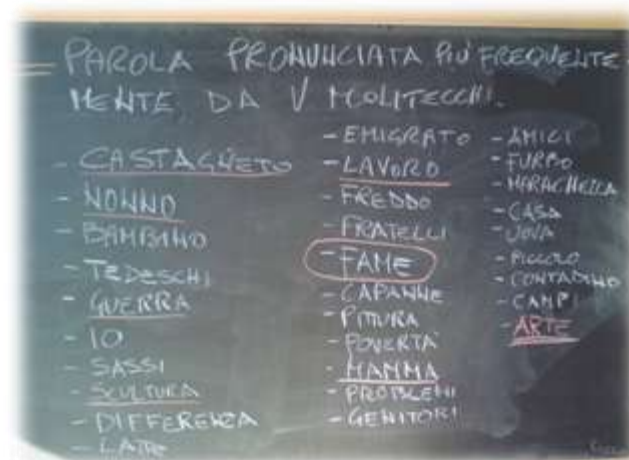 PAROLA PRONUNCIATA PIÙ FREQUENTE-
MENTE, DA V MOLITECCHI.
- CASTAGNETO
- NONNO
- BAMBINO
- TEDESCHI
- GUERRA
- IO
- SASSI
- SCULTURA
- DIFFERENZA
- LATTE
- EMIGRATO
- LAVORO
- FREDDO
- FRATELLI
- FAME
- CAPANNE
- PITTURA
- POVERTÀ
- MAMMA
- PROBLEMI
- GENITORI
- AMICI
- FURBO
- MARACHELLA
- CASA
- UOVA
- PICCOLO
- CONTADINO
- CAMPI
- ARTE